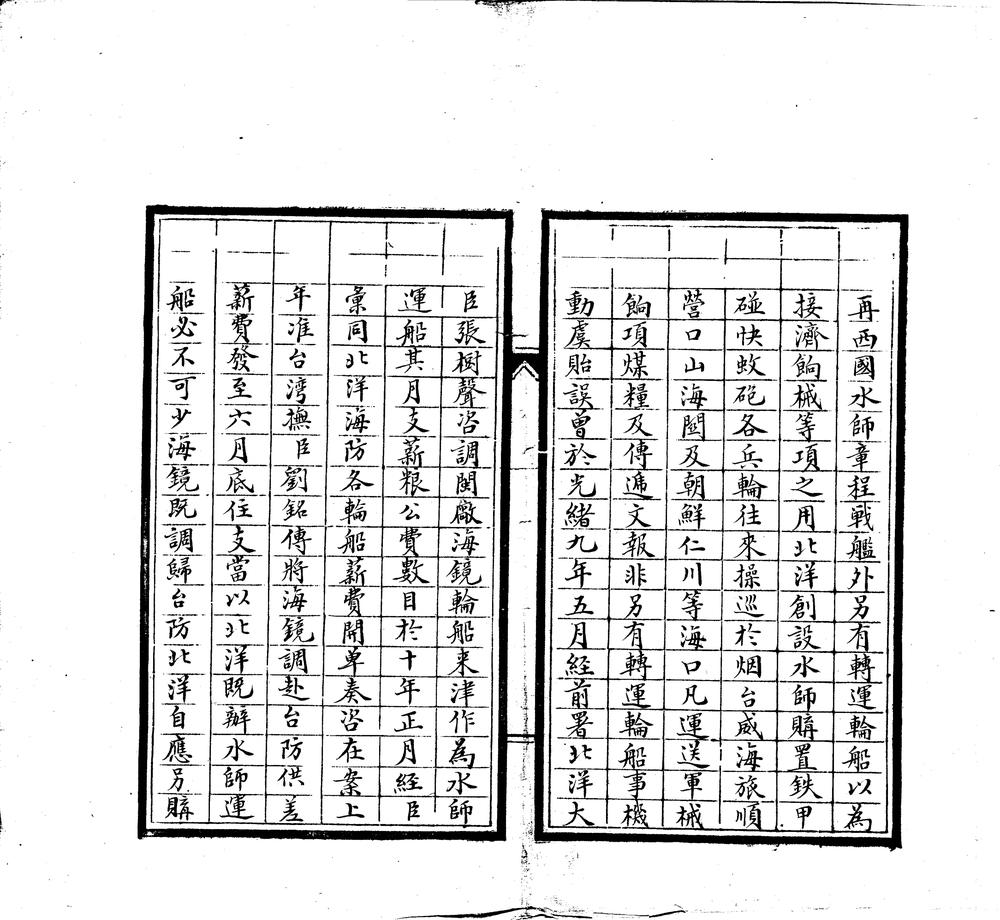 再西國水師章程戰艦外另有轉運輪船以為
接濟餉械等項之用北洋創設水師購置鉄甲
碰快蚊砲各兵輪往來操巡於烟台威海旅順
營口山海關及朝鮮仁川等海口凡運送軍械
餉項煤糧及傳遞文報非另有轉運輪船事機
動虞貽誤曾於光緒九年五月經前署北洋大
臣張樹聲咨調閩廠海鏡輪船来津作為水師
運船其月支薪粮公費數目於十年正月經臣
彙同北洋海防各輪船薪費開单奏咨在案上
年准台湾撫臣劉銘傳將海鏡調赴台防供差
薪費發至六月底住支當以北洋既辦水師運
船必不可少海鏡既調歸台防北洋自應另購